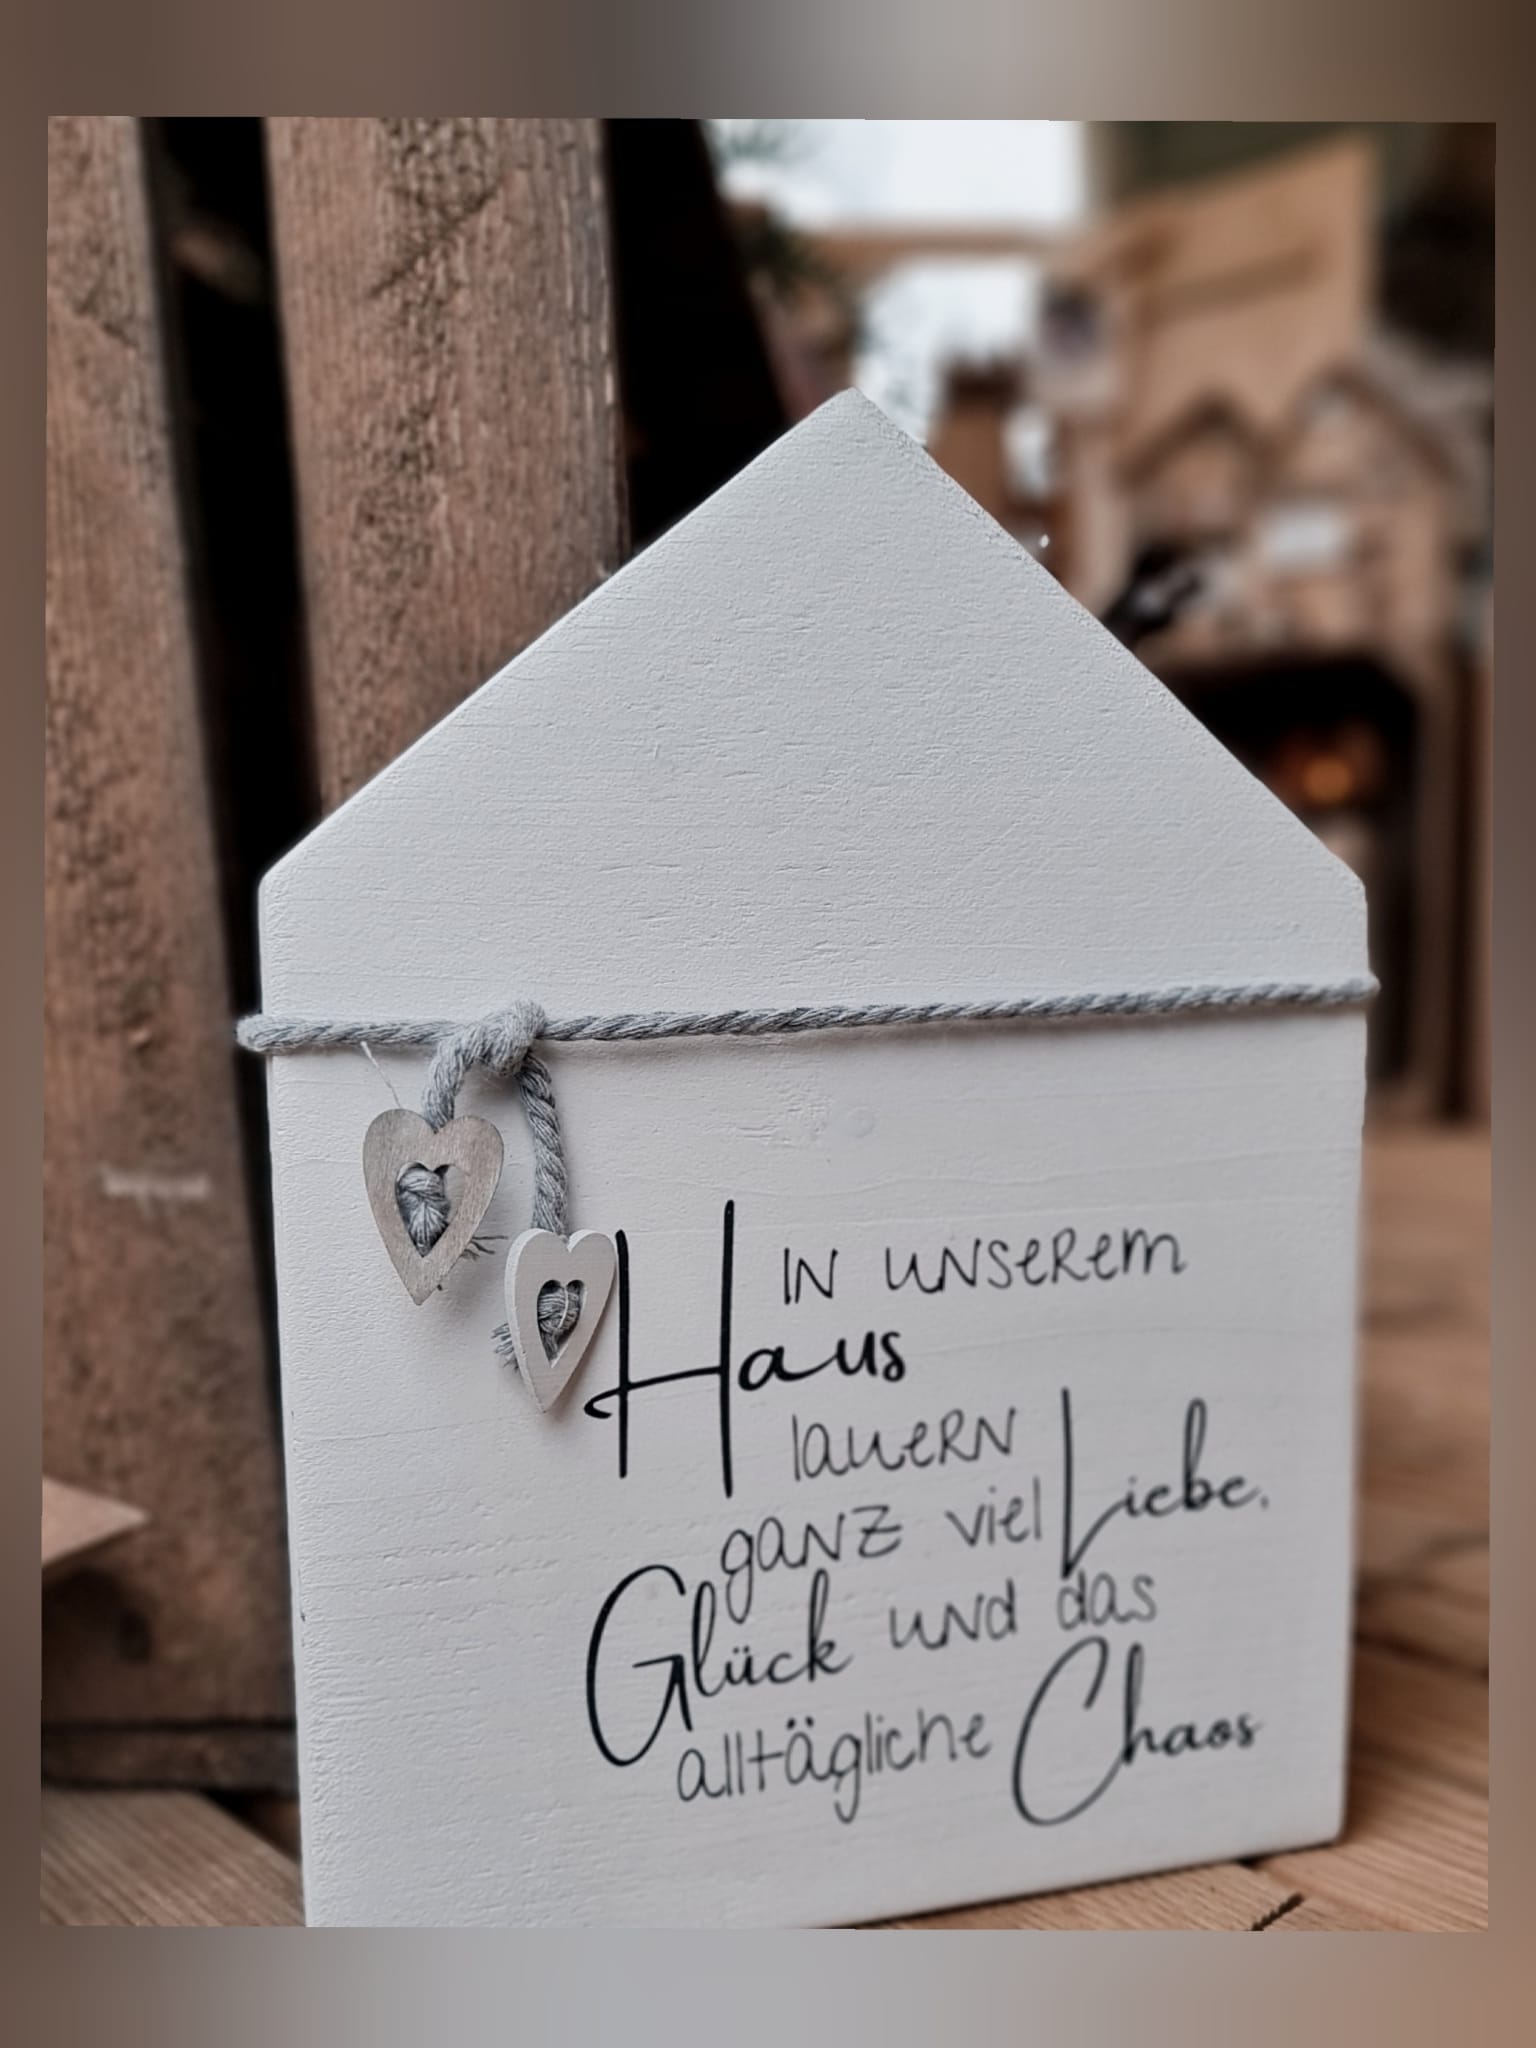 IN unserem
Haus
lauern
ganz viel Liebe,
Glück und das
alltägliche Chaos